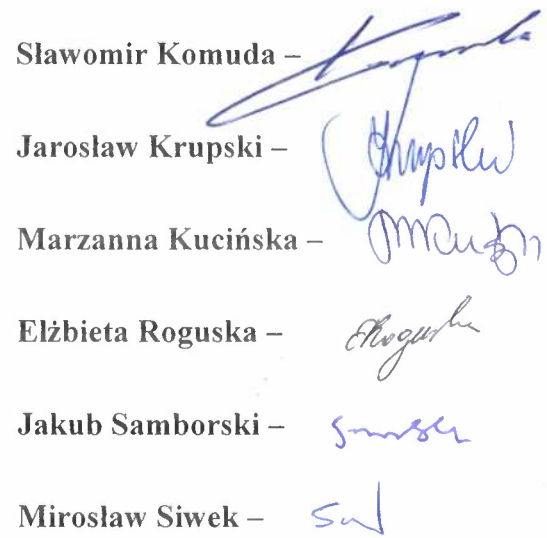 Sławomir Komuda –
Jarosław Krupski –
Marzanna Kucińska –
Elżbieta Roguska –
Jakub Samborski –
Mirosław Siwek –